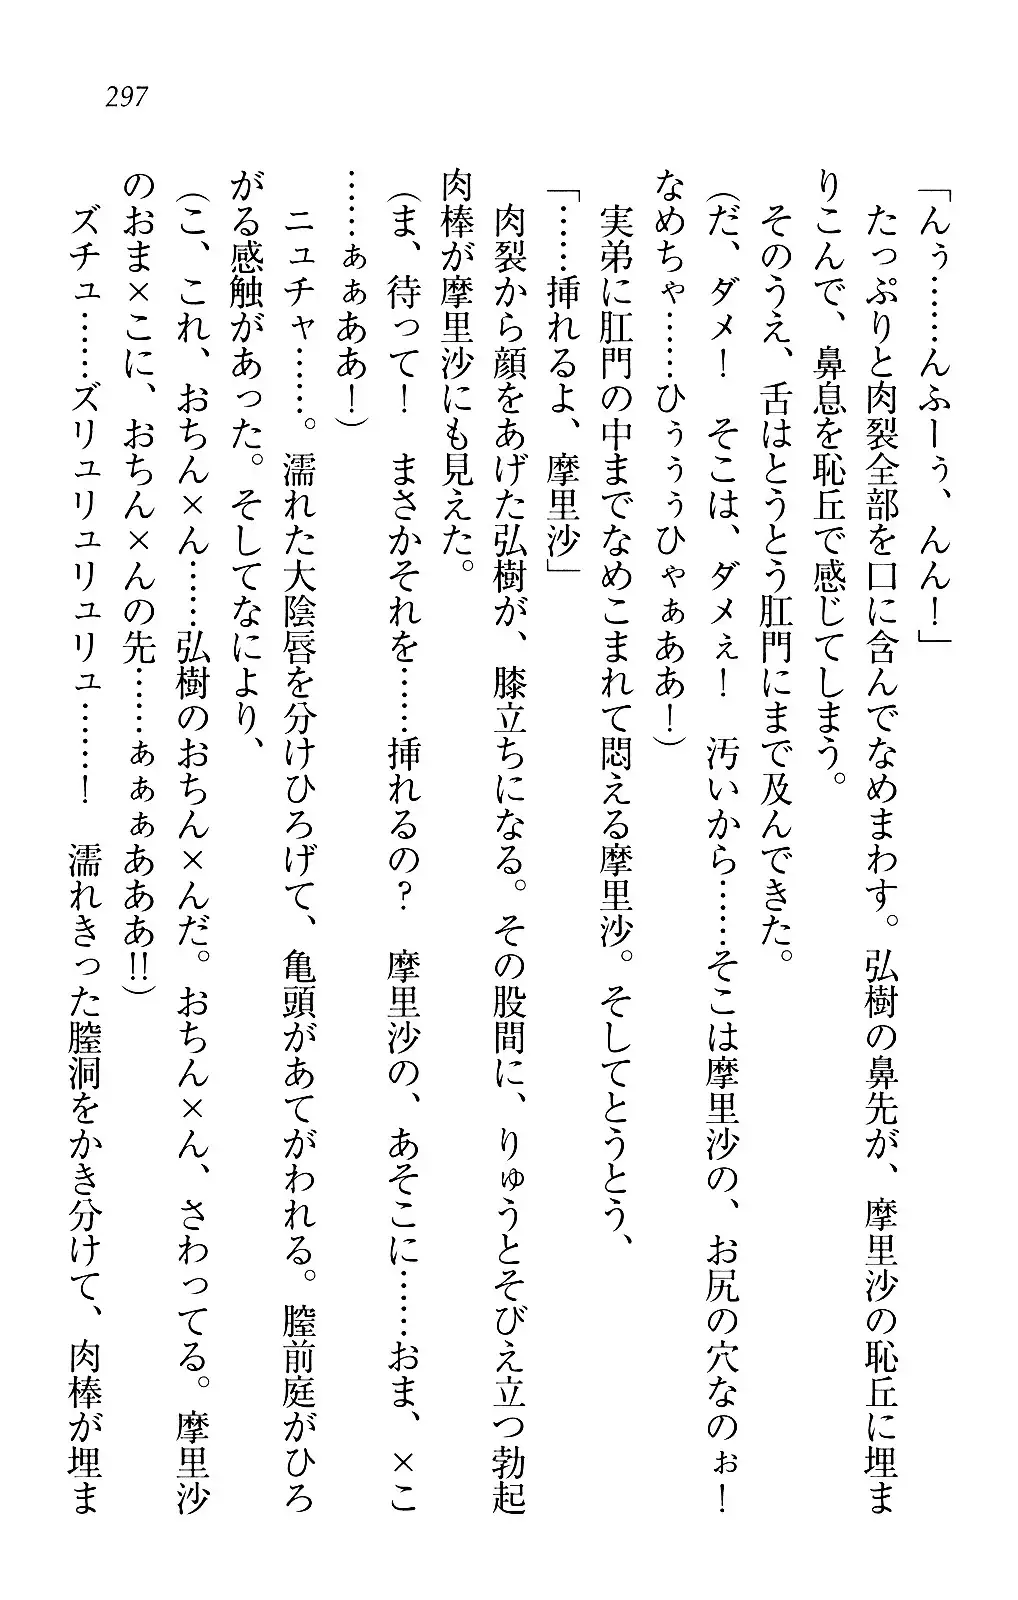 297
「んぅ……んふーぅ、んん！」
たっぷりと肉裂全部を口に含んでなめまわす。弘樹の鼻先が、摩里沙の恥丘に埋ま
りこんで、鼻息を恥丘で感じてしまう。
そのうえ、舌はとうとう肛門にまで及んできた。
（だ、ダメ！　そこは、ダメぇ！　汚いから……そこは摩里沙の、お尻の穴なのぉ！
なめちゃ……ひぅぅぅひゃぁああ！）
実弟に肛門の中までなめこまれて悶える摩里沙。そしてとうとう、
「……挿れるよ、摩里沙」
肉裂から顔をあげた弘樹が、膝立ちになる。その股間に、りゅうとそびえ立つ勃起
肉棒が摩里沙にも見えた。
（ま、待って！　まさかそれを……挿れるの？　摩里沙の、あそこに……おま、×こ
……ぁぁああ！）
ニュチャ……。濡れた大陰唇を分けひろげて、亀頭があてがわれる。膣前庭がひろ
がる感触があった。そしてなにより、
（こ、これ、おちん×ん……弘樹のおちん×んだ。おちん×ん、さわってる。摩里沙
のおま×こに、おちん×んの先……ぁぁぁあああ!!）
ズチュ……ズリュリュリュリュ……！　濡れきった膣洞をかき分けて、肉棒が埋ま